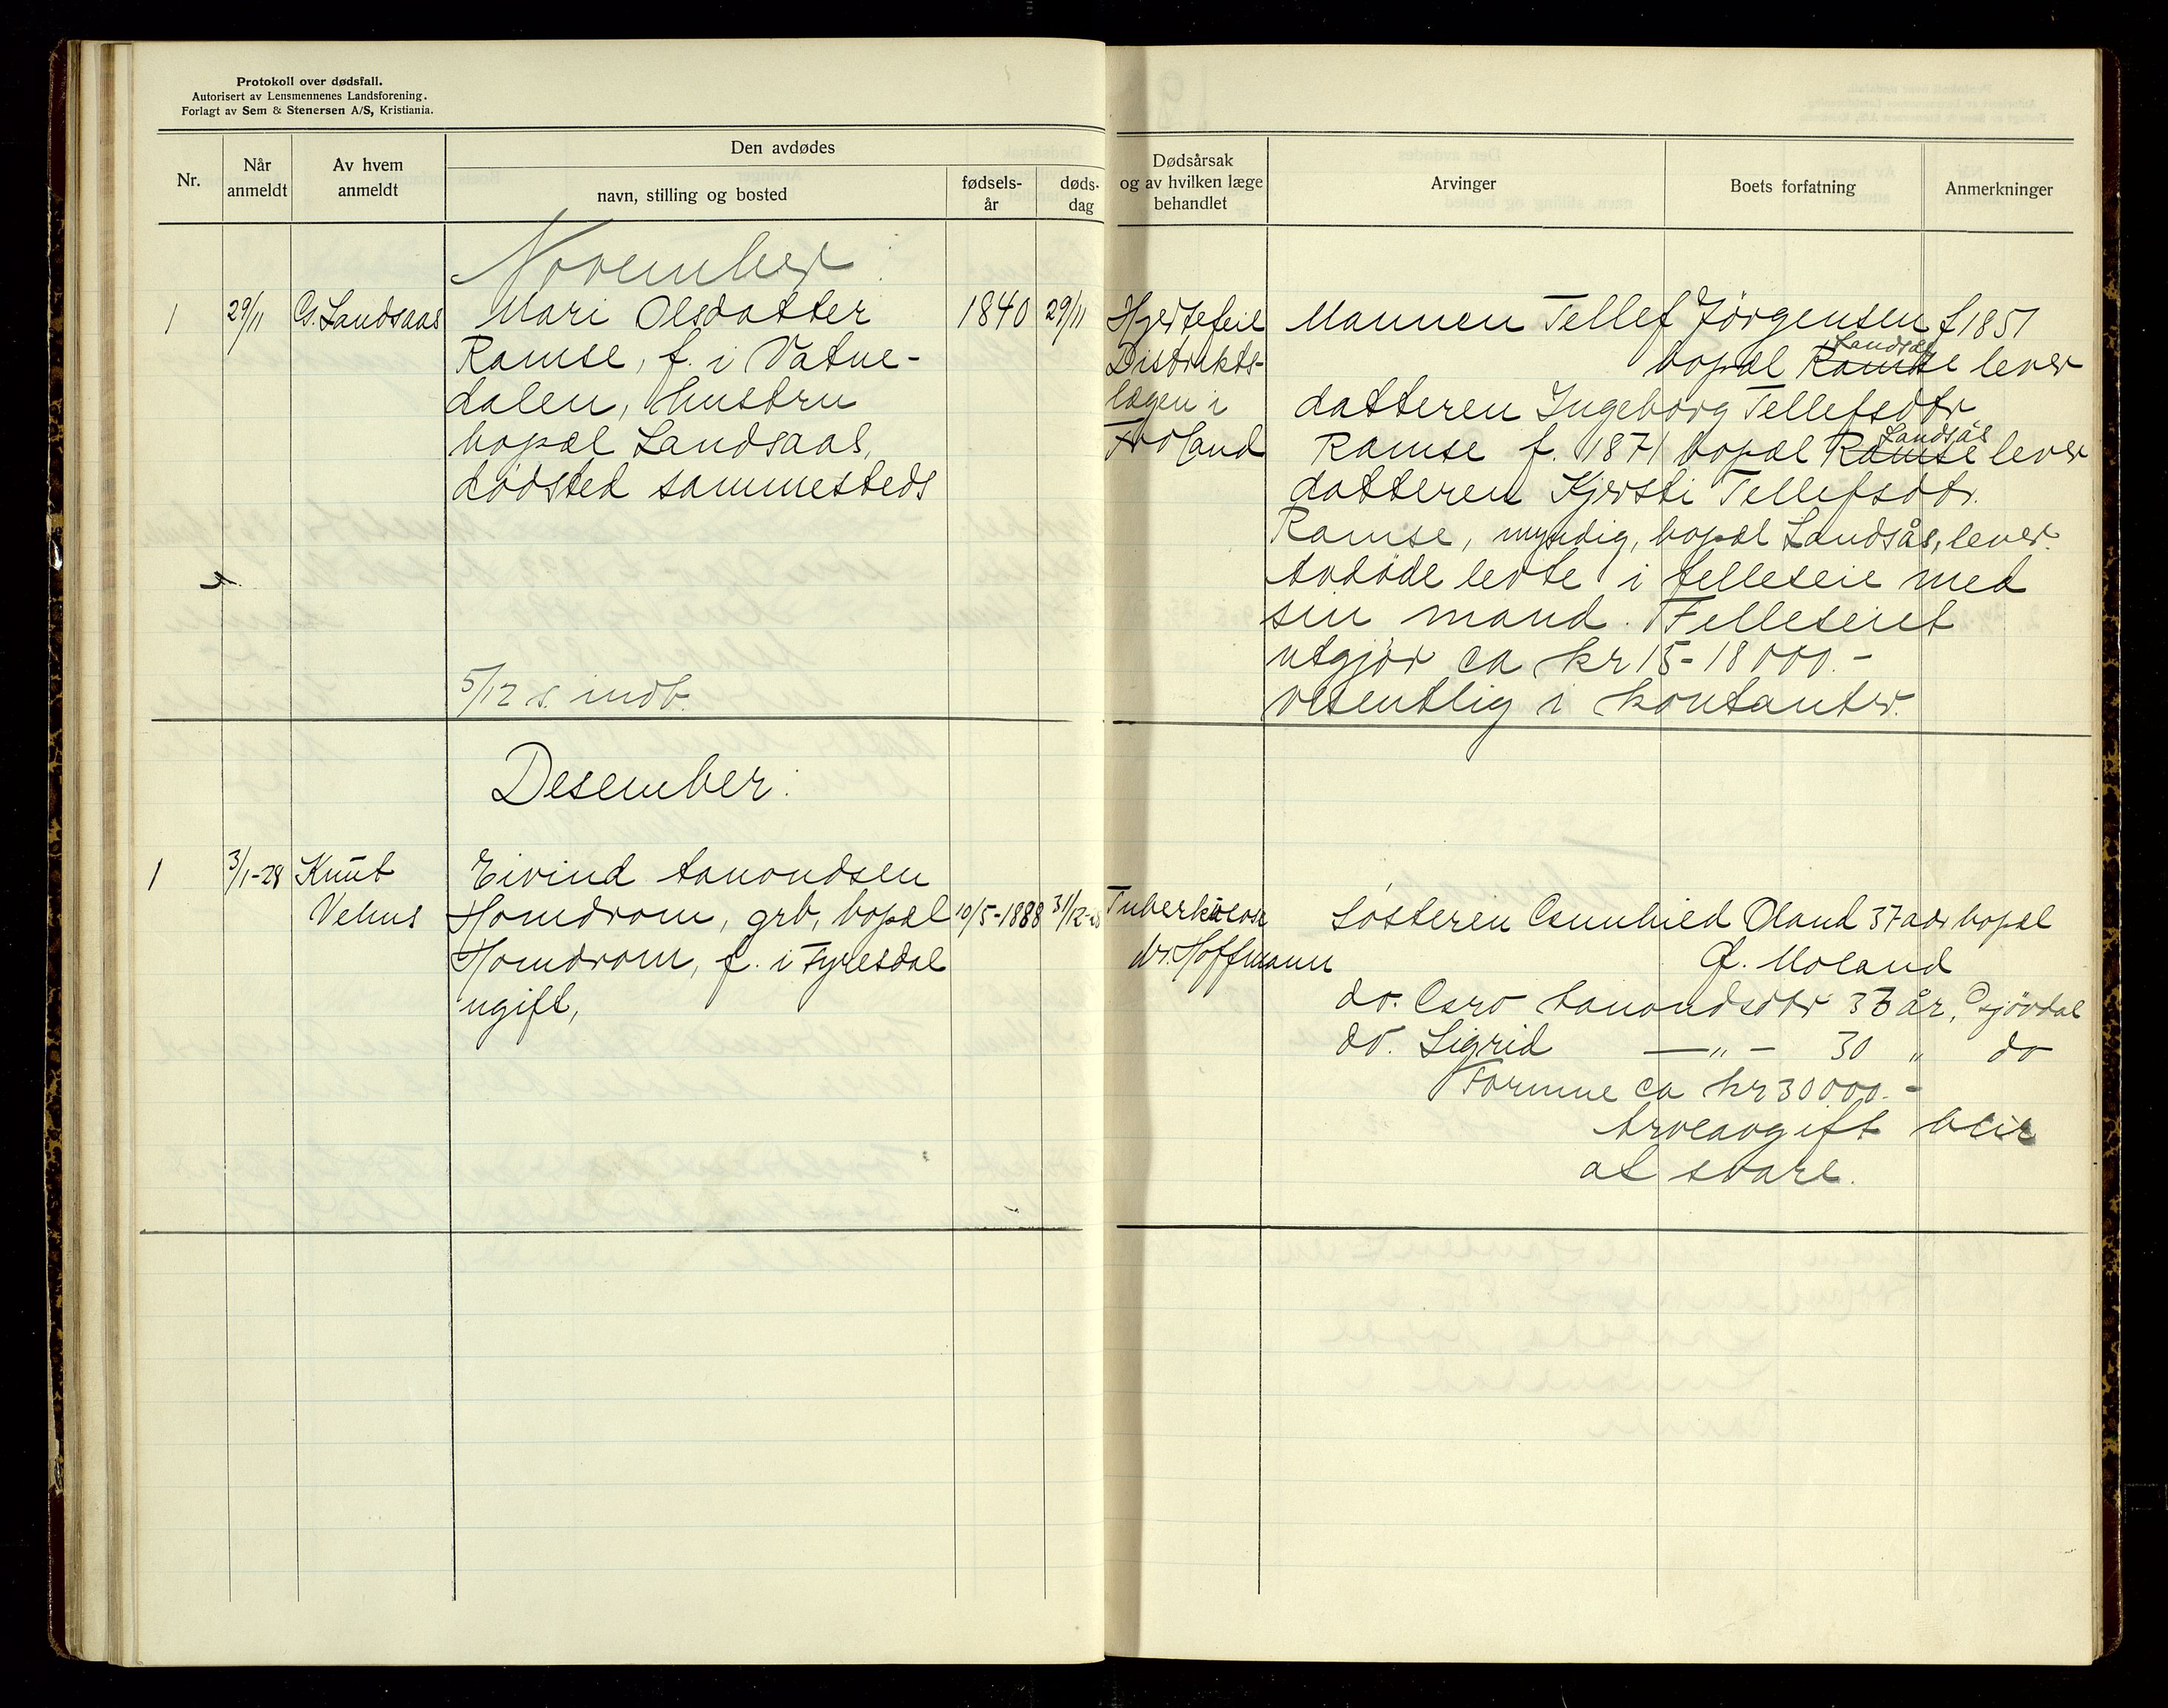 Protokoll over dødsfall.
Autorisert av Lensmennenes Landsforening.
Forlagt av Sem & Stenersen A/S, Kristiania.
Nr.
Når anmeldt
Av hvem anmeldt
Den avdødes
navn, stilling og bosted
fødsels-år
døds-dag
Dødsårsak og av hvilken læge behandlet
Arvinger
Boets forfatning
Anmerkninger
November:
1 29/11 G. Landsaas Mari Olsdatter 1840 29/11
Ramse, f. i Vatne-
dalen, hustru
bopæl Landsaas,
dødsted sammesteds
5/12 s. indb.
Hjertefeil
Distrikts-
lægen i
Froland
Mannen Tellef Jörgensen f 1851
Landsås
bopæl Ramse lever
datteren Ingeborg Tellefsdtr
Landsås
Ramse f. 1871 bopæl Ramse lever
datteren Kjersti Tellefsdtr.
Ramse, myndig, bopæl Landsås, lever.
Avdöde levte i felleseie med
sin mand. Felleseiet
utgjör ca kr 15-18000.-
vesentlig i kontanter.
Desember:
1 3/1-29 Knut Eivind Aanondsen
Vehus Homdrom, grb, bopæl 10/5-1888 31/12-28
Homdrom, f. i Fyresdal
ugift,
Tuberkulose
dr. Hoffmann
Søsteren Gunhild Oland 37 aar bopæl
G. Moland
do. Aanondsdtr år, Gjövdal
do. Sigrid —"— 30 " do
Formue ca kr 30000.-
Arveavgift blir
at svare.